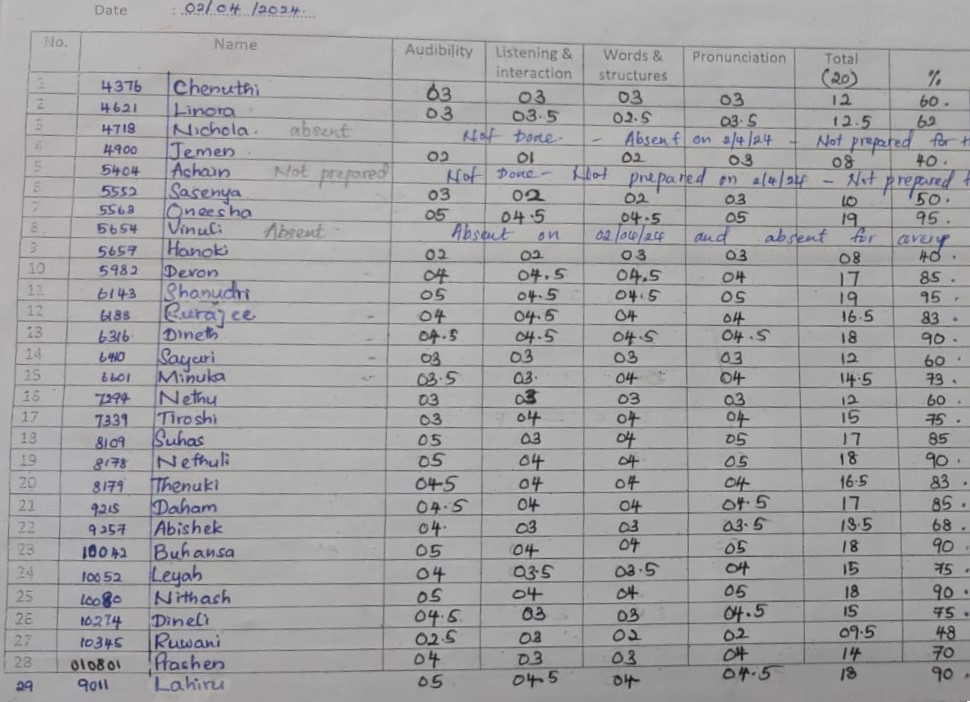 Date : 02/04/2024
No. Name Audibility Listening & interaction Words & structures Pronunciation Total (20) %
1 4376 Chenuthi 03 03 03 03 12 60.
2 4621 Linora 03 03.5 02.5 03.5 12.5 62
3 4718 Nichola. absent Not Done - Absent on 2/4/24 - Not prepared for
4 4900 Jemen 02 01 02 03 08 40.
5 5404 Achain Not prepared Not Done - Not prepared on 2/4/24 - Not prepared
6 5552 Sasenya 03 02 02 03 10 50.
7 5563 Oneesha 05 04.5 04.5 05 19 95.
8. 5654 Vinuli Absent Absent on 02/04/24 and absent for
9 5657 Hanoki 02 02 03 03 08 40.
10 5982 Devon 04 04.5 04.5 04 17 85.
11 6143 Shanudri 05 04.5 04.5 05 19 95.
12 6188 04 04.5 04 04 16.5 83.
13 6316 Dineth 04.5 04.5 04.5 04.5 18 90.
14 6410 Sayuri - 03 03 03 03 12 60
15 6601 Minuka - 03.5 03. 04 04 14.5 73.
16 7294 Nethu 03 03 03 03 12 60
17 7339 Tiroshi 03 04 04 04 15 75.
18 8109 Suhas 05 03 04 05 17 85
19 8178 Nethuli 05 04 04 05 18 90.
20 8179 Thenuki 04.5 04 04 04 16.5 83.
21 9215 Daham 04.5 04 04 04.5 17 85.
22 9257 Abishek 04. 03 03 03.5 13.5 68.
23 10042 Buhansa 05 04 04 05 18 90
24 10052 Leyah 04 03.5 03.5 04 15 75.
25 10080 Nithash 05 04 04 05 18 90.
26 10274 Dineli 04.5 03 03 04.5 15 75.
27 10345 Ruwani 02.5 03 02 02 09.5 48
28 010801 Prashen 04 03 03 04 14 70
29 9011 Lahiru 05 04.5 04 04.5 18 90.